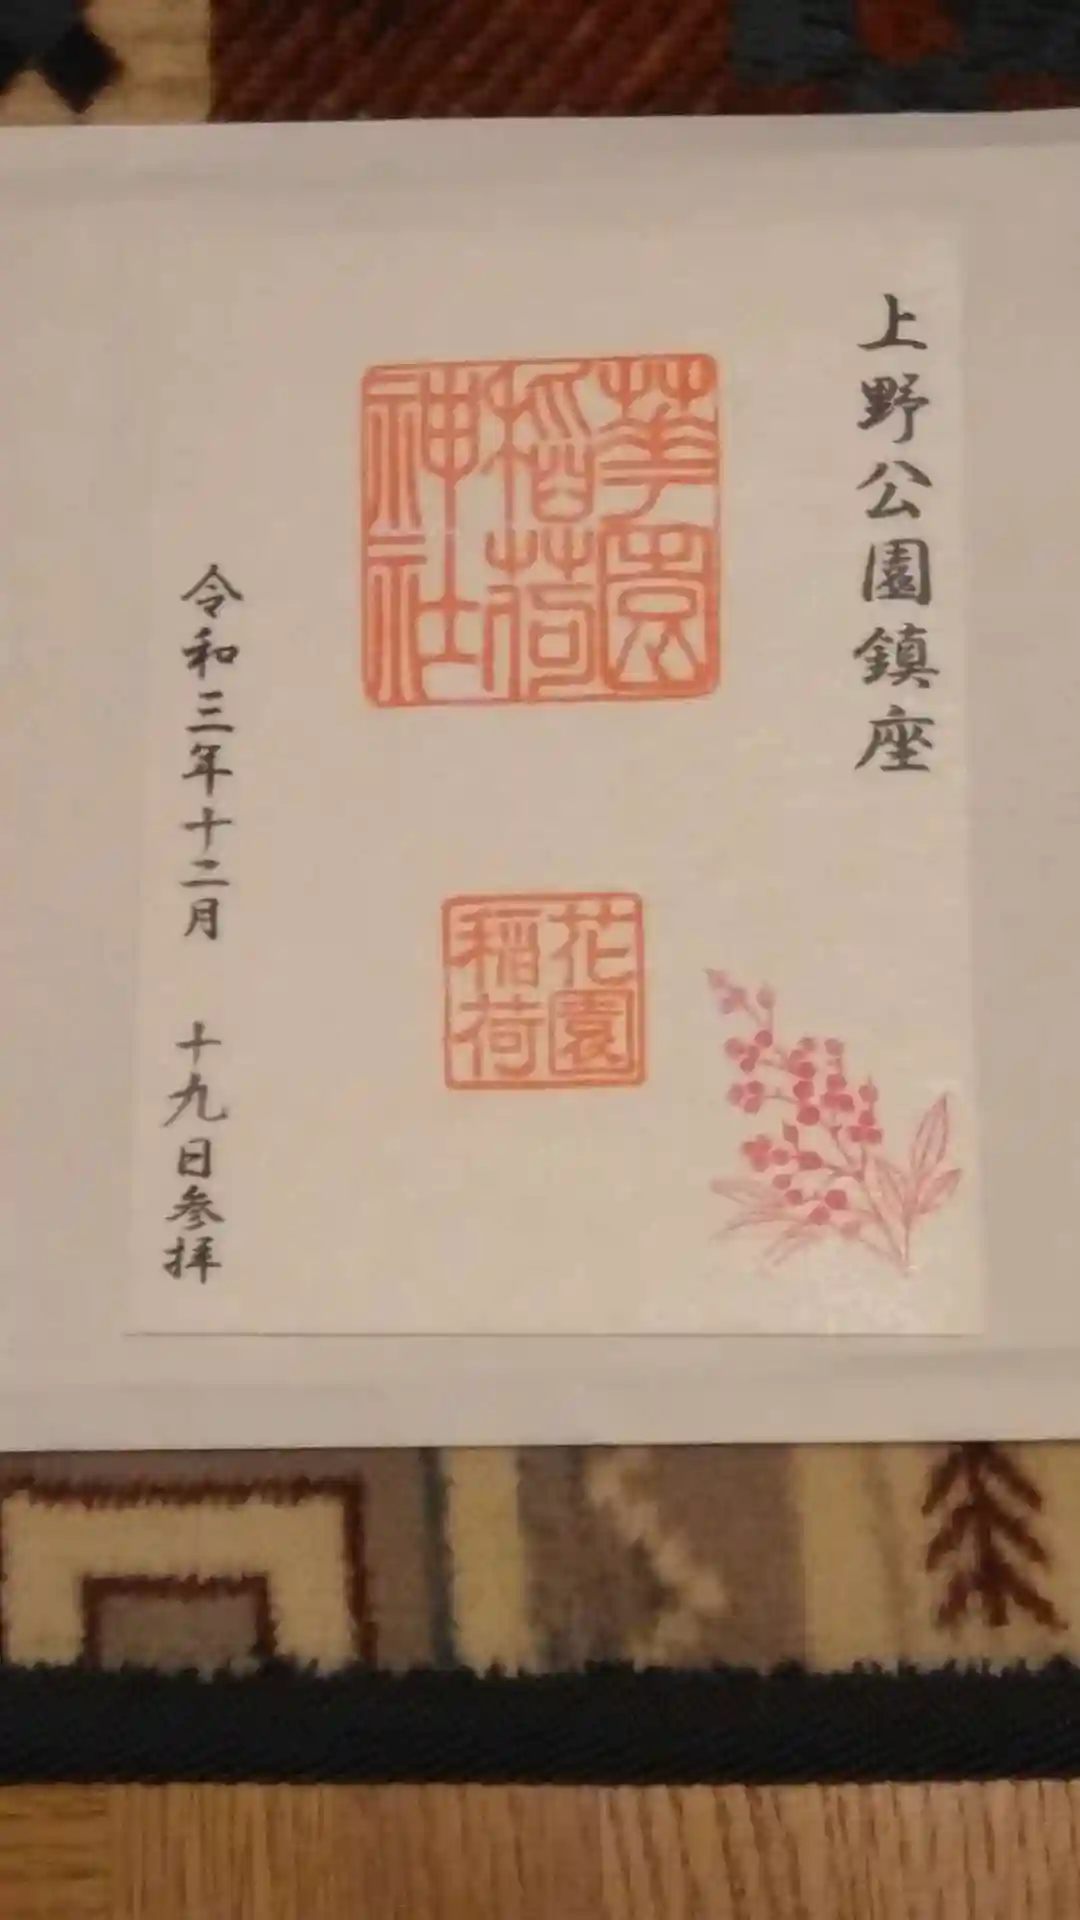 上野公園鎮座
華園
稲荷
神社
花園
稲荷
令和三年十二月 十九日参拝